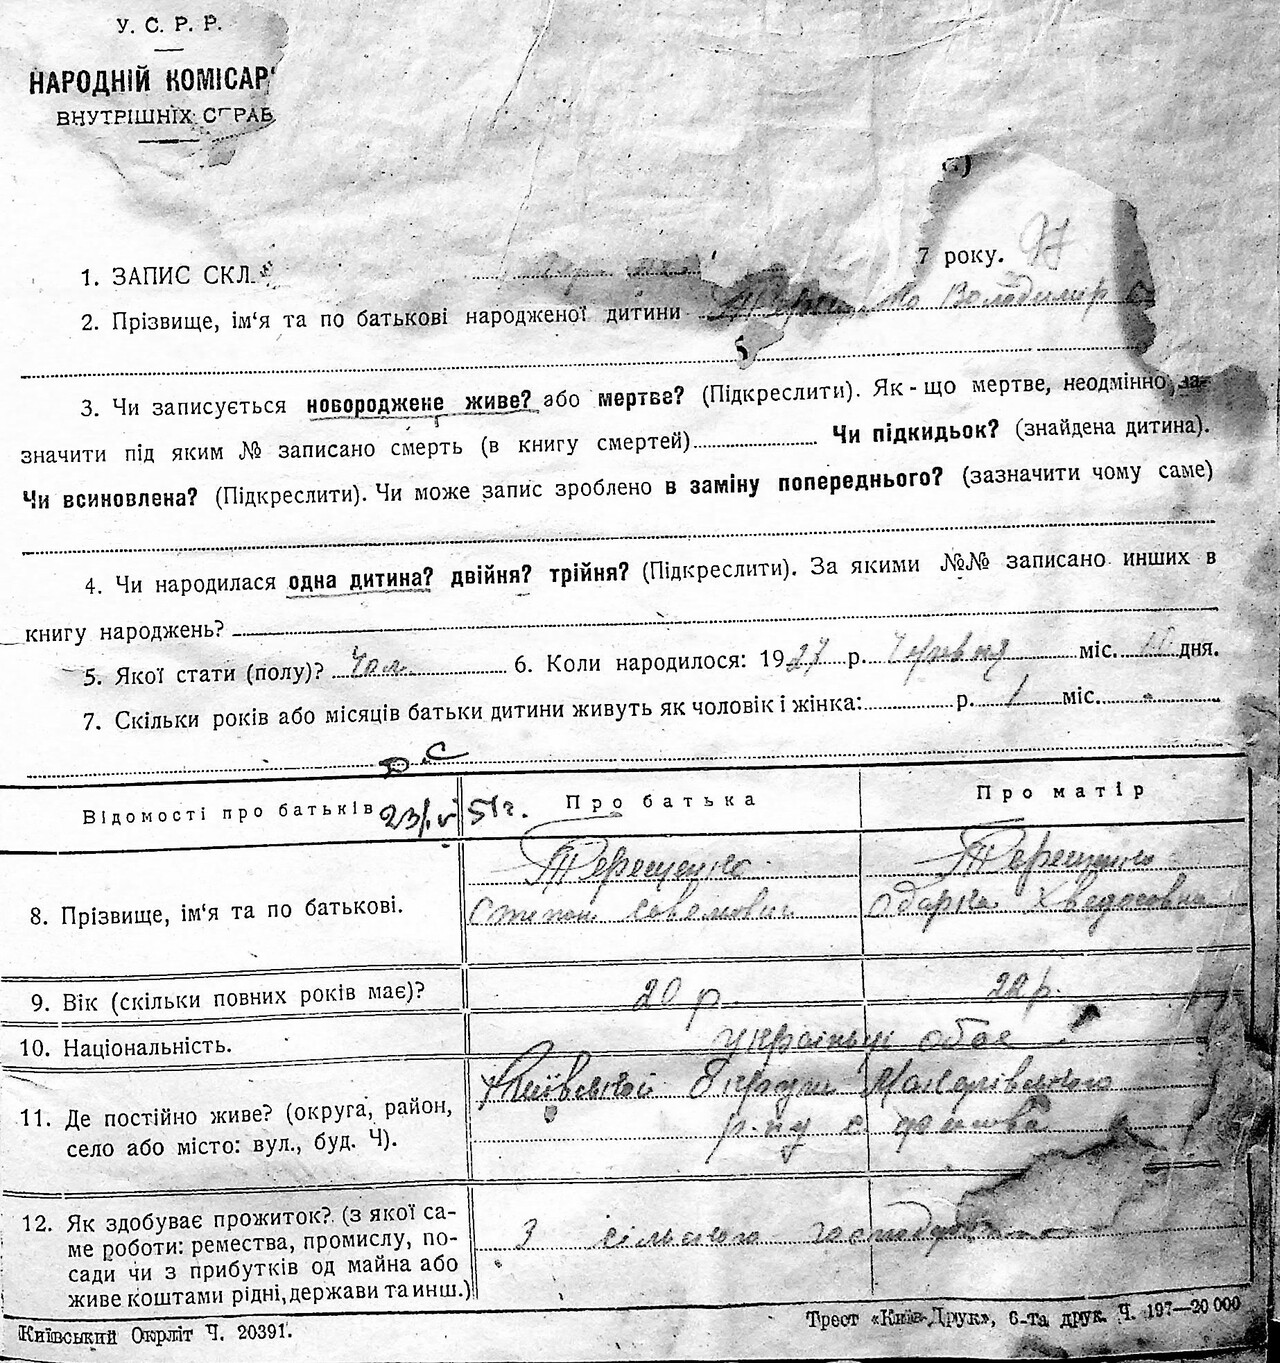 У. С. Р. Р.
НАРОДНІЙ КОМІСАР
ВНУТРІШНІХ СПРАВ
1. ЗАПИС СКЛ. 7 року. 97
2. Прізвище, ім‘я та по батькові народженої дитини Володимир
3. Чи записується новороджене живе? або мертве? (Підкреслити). Як-що мертве, неодмінно за-
значити під яким № записано смерть (в книгу смертей) Чи підкидьок? (знайдена дитина).
Чи всиновлена? (Підкреслити). Чи може запис зроблено в заміну попереднього? (зазначити чому саме)
4. Чи народилася одна дитина? двійня? трійня? (Підкреслити). За якими №№ записано инших в
книгу народжень?
5. Якої стати (полу)? Чол. 6. Коли народилося: 1927 р. Червня міс. 10 дня.
7. Скільки років або місяців батьки дитини живуть як чоловік і жінка: р. 1 міс.
Відомості про батьків 23/V 51г. Про батька Про матір
8. Прізвище, ім‘я та по батькові. Терещенко Терещенко
Степан Савимович Одарка Хведосовна
9. Вік (скільки повних років має)? 20 р. 22 р.
10. Національність. Українці обоє
11. Де постійно живе? (округа, район, Київської Округи Макарівського
село або місто: вул., буд. Ч). р-ну с
12. Як здобуває прожиток? (з якої са-
ме роботи: ремества, промислу, по- З сільського господарства
сади чи з прибутків од майна або
живе коштами рідні, держави та инш.)
Київський Окрліт Ч. 20391. Трест «Київ-Друк», 6-та друк. Ч. 197—20 000